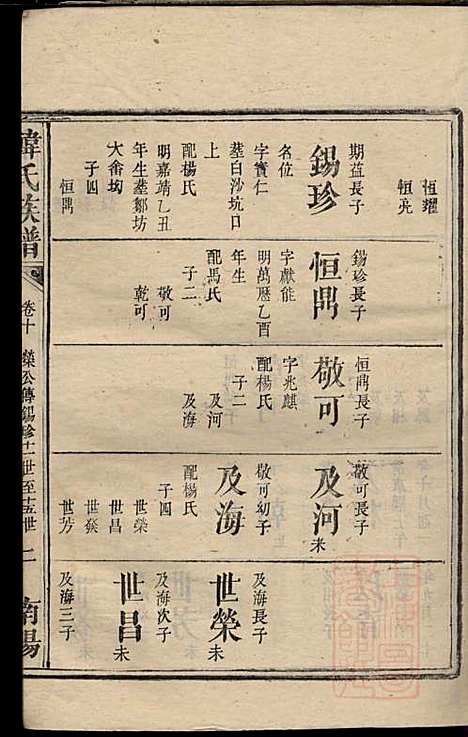 恒耀
恒亮
期益長子
錫珍
名位
字實仁
塟白沙坑口
上
配楊氏
明嘉靖乙丑
年生塟鄒坊
大畬坳
子四
恒鼎
錫珍長子
恒鼎
字獻能
明萬曆乙酉
年生
配馬氏
子二
敬可
乾可
恒鼎長子
敬可
字兆麒
配楊氏
子二
及河
及海
敬可長子
及河未
敬可幼子
及海
配楊氏
子四
世榮
世昌
世葵
世芳
及海長子
世榮未
及海次子
世昌未
及海三子
韓氏族譜
卷十
榮公傳錫珍十一世至十五世
二
南陽